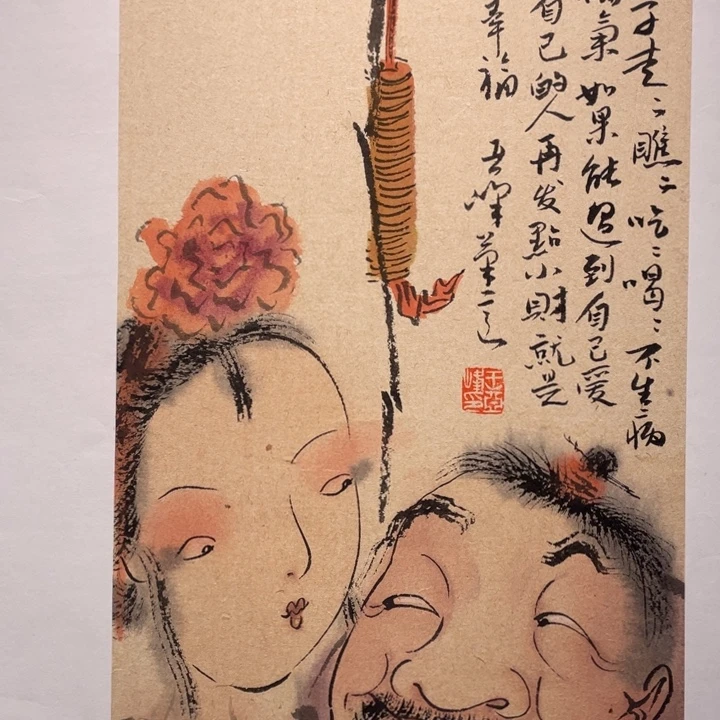 子走〻瞧〻吃〻喝〻不生病
氣如果能遇到自己愛
自己的人再发點小財就是
幸福